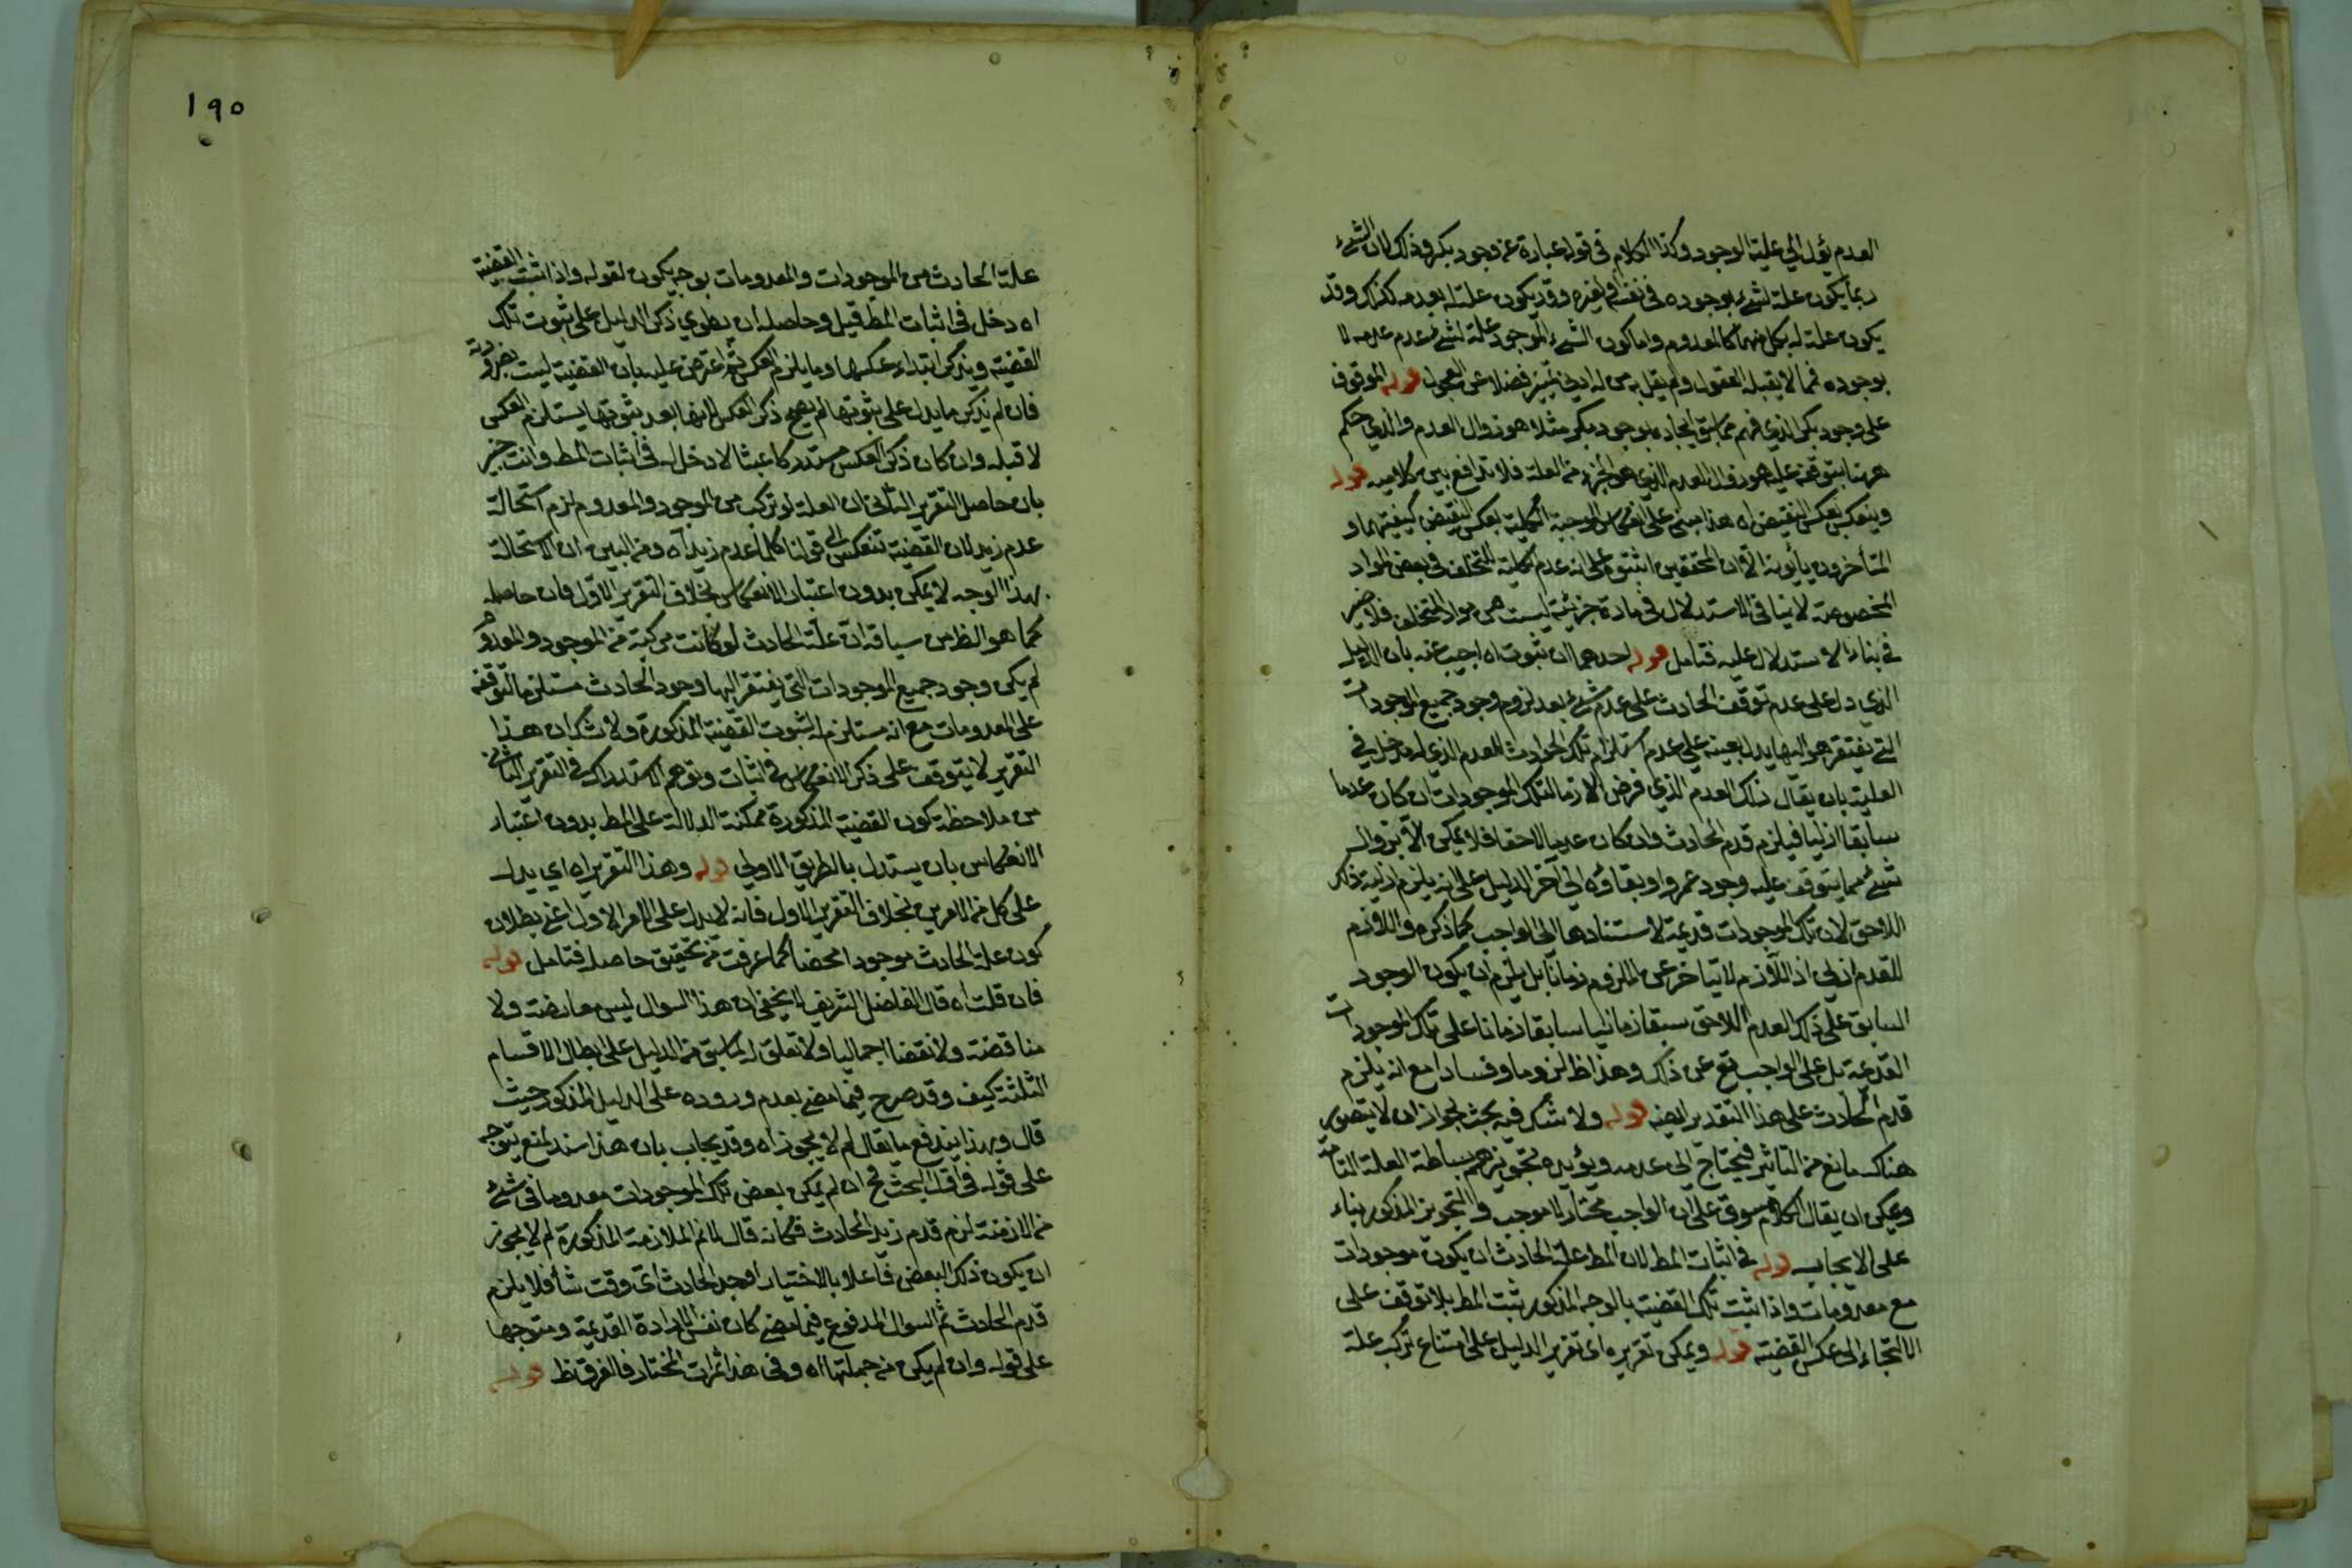 العدم يؤل الى علية الوجود وكذا الكلام فى قوله عبارة عن وجود بكر وذلك لان الشئ
ربما يكون علة لشئ بوجوده فى نفسه او لغيره وقد يكون علة له بعدمه كذلك وقد
يكون علة له بكل منهما كالمعدوم واما كون الشئ الموجود علة لشئ بعدم عدمه لا
بوجوده فمما لا يقبله العقول ولم يقل به من له ادنى تمييز فضلا عن الفحول قوله الموقوف
على وجود بكر الذي فهم مما سبق ايجاده بوجود بكر مثلا هو زوال العدم والذي حكم
ههنا بتوقفه عليه هو زوال العدم الذي هو الجزء من العلة فلا تدافع بين كلاميه قوله
وينعكس بعكس النقيض اه هذا مبنى على انعكاس الموجبة الكلية بعكس النقيض كنفسها و
المتأخرون يأبونه الا ان المحققين اثبتوه على انه عدم كلية للتخلف فى بعض المواد
المخصوصة لا ينافى الاستدلال فى مادة جزئية ليست من مواد التخلف فلا ضير
فى بناء الاستدلال عليه فتامل قوله احدهما ان ثبوت اه اجيب عنه بان الدليل
الذي دل على عدم توقف الحادث على عدم شئ بعد لزوم وجود جميع الموجودات
التى يفتقر هو اليها يدل بعينه على عدم استلزام تلك الحوادث للعدم الذي له مدخل فى
العلية بان يقال ذلك العدم الذي فرض لازما لتلك الموجودات ان كان عدما
سابقا ازليا فيلزم قدم الحادث وان كان عدما لاحقا فلا يمكن الا بزوال
شئ مما يتوقف عليه وجود عمرو او بقاؤه الى آخر الدليل على انه يلزم ازلية ذلك
اللاحق لان تلك الموجودات قديمة لاستنادها الى الواجب كما ذكره واللازم
للقديم ازلى اذ اللازم لا يتأخر عن الملزوم زمانا بل يلزم ان يكون الوجود
السابق على ذلك العدم اللاحق سبقا زمانيا سابقا زمانا على تلك الموجودات
القديمة بل على الواجب تع عن ذلك وهذا ظ لزوما وفسادا مع انه يلزم
قدم الحادث على هذا التقدير ايضا قوله ولا شك فيه بحث لجواز ان لا يتصور
هناك مانع من التاثير فيحتاج الى عدمه ويؤيده تجويزهم بساطة العلة التامة
ويمكن ان يقال الكلام مسوق على ان الواجب مختار لا موجب والتجويز المذكور بناء
على الايجاب قوله فى اثبات المط لان المط علة الحادث ان يكون موجودات
مع معدومات واذا ثبت تلك القضية بالوجه المذكور ثبت المط بلا توقف على
الالتجاء الى عكس القضية قوله ويمكن تقريره اى تقرير الدليل على امتناع تركب علة
١٩٥
علة الحادث من الموجودات والمعدومات بوجه يكون لقوله واذا ثبت القضية
اه دخل فى اثبات المط قيل وحاصله ان يطوي ذكر الدليل على ثبوت تلك
القضية ويذكر ابتداء عكسها وما يلزم العكس ثم اعترض عليه بان القضية ليست بضرورية
فان لم يذكر ما يدل على ثبوتها لم يصح ذكر العكس لانها بعد ثبوتها يستلزم العكس
لا قبله وان كان ذكر العكس مستدركا عبثا لا دخل له فى اثبات المط وانت خبير
بان حاصل التقرير الثانى ان العلة لو تركب من الموجود والمعدوم لزم استحالة
عدم زيد لان القضية تنعكس الى قولنا كلما عدم زيد اه ومن البين ان الاستحالة
بهذا الوجه لا يمكن بدون اعتبار الانعكاس بخلاف التقرير الاول فان حاصله
كما هو الظ من سياقه ان علة الحادث لو كانت مركبة من الموجود والمعدوم
لم يكن وجود جميع الموجودات التى يفتقر اليها وجود الحادث مستلزما لتوقفه
على المعدومات مع انه مستلزم له لثبوت القضية المذكورة ولا شك ان هذا
التقرير لا يتوقف على ذكر الانعكاس فى اثبات وتوهم الاستدراك فى التقرير الثانى
من ملاحظة كون القضية المذكورة ممكنة الدلالة على المط بدون اعتبار
الانعكاس بان يستدل بالطريق الاولى قوله وهذا التقرير اه اي يدل
على كل من الامرين بخلاف التقرير الاول فانه لا يدل على الامر الاول اعنى بطلان
كون علة الحادث موجودا محضا كما عرفت من تحقيق حاصله فتامل قوله
فان قلت اه قال الفاضل الشريف لا يخفى ان هذا السوال ليس معارضة ولا
مناقضة ولا نقضا اجماليا ولا تعلق له بما سبق من الدليل على ابطال الاقسام
الثلثة كيف وقد صرح فيما مضى بعدم وروده على الدليل المذكور حيث
قال وبهذا يندفع ما يقال لم لا يجوز اه وقد يجاب بان هذا سند لمنع يتوجه
على قوله فى اول البحث فح ان لم يكن بعض تلك الموجودات معدوما فى شئ
من الازمنة لزم قدم زيد الحادث فكانه قال لا نم الملازمة المذكورة لم لا يجوز
ان يكون ذلك البعض فاعلا بالاختيار اوجد الحادث اى وقت شاء فلا يلزم
قدم الحادث ثم السوال المدفوع فيما مضى كان نفس الارادة القديمة ومتوجها
على قوله وان لم يكن من جملتها اه وفى هذا المختار فالفرق ظ قوله